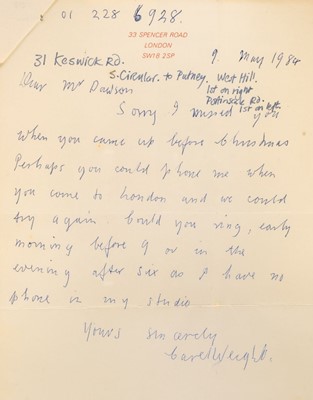 x 01 228 6928.
33 SPENCER ROAD
LONDON
SW18 2SP
31 Keswick RD.
9. May 1984
S. Circular. to Putney. West Hill.
1st on right
Rd.
1st on left
Dear Mr Dawson
Sorry I missed you
when you came up before Christmas
Perhaps you could phone me when
you come to London and we could
try again. Could you ring, early
morning before 9 or in the
evening after six as I have no
phone in my studio
Yours sincerely
Carel Weight.